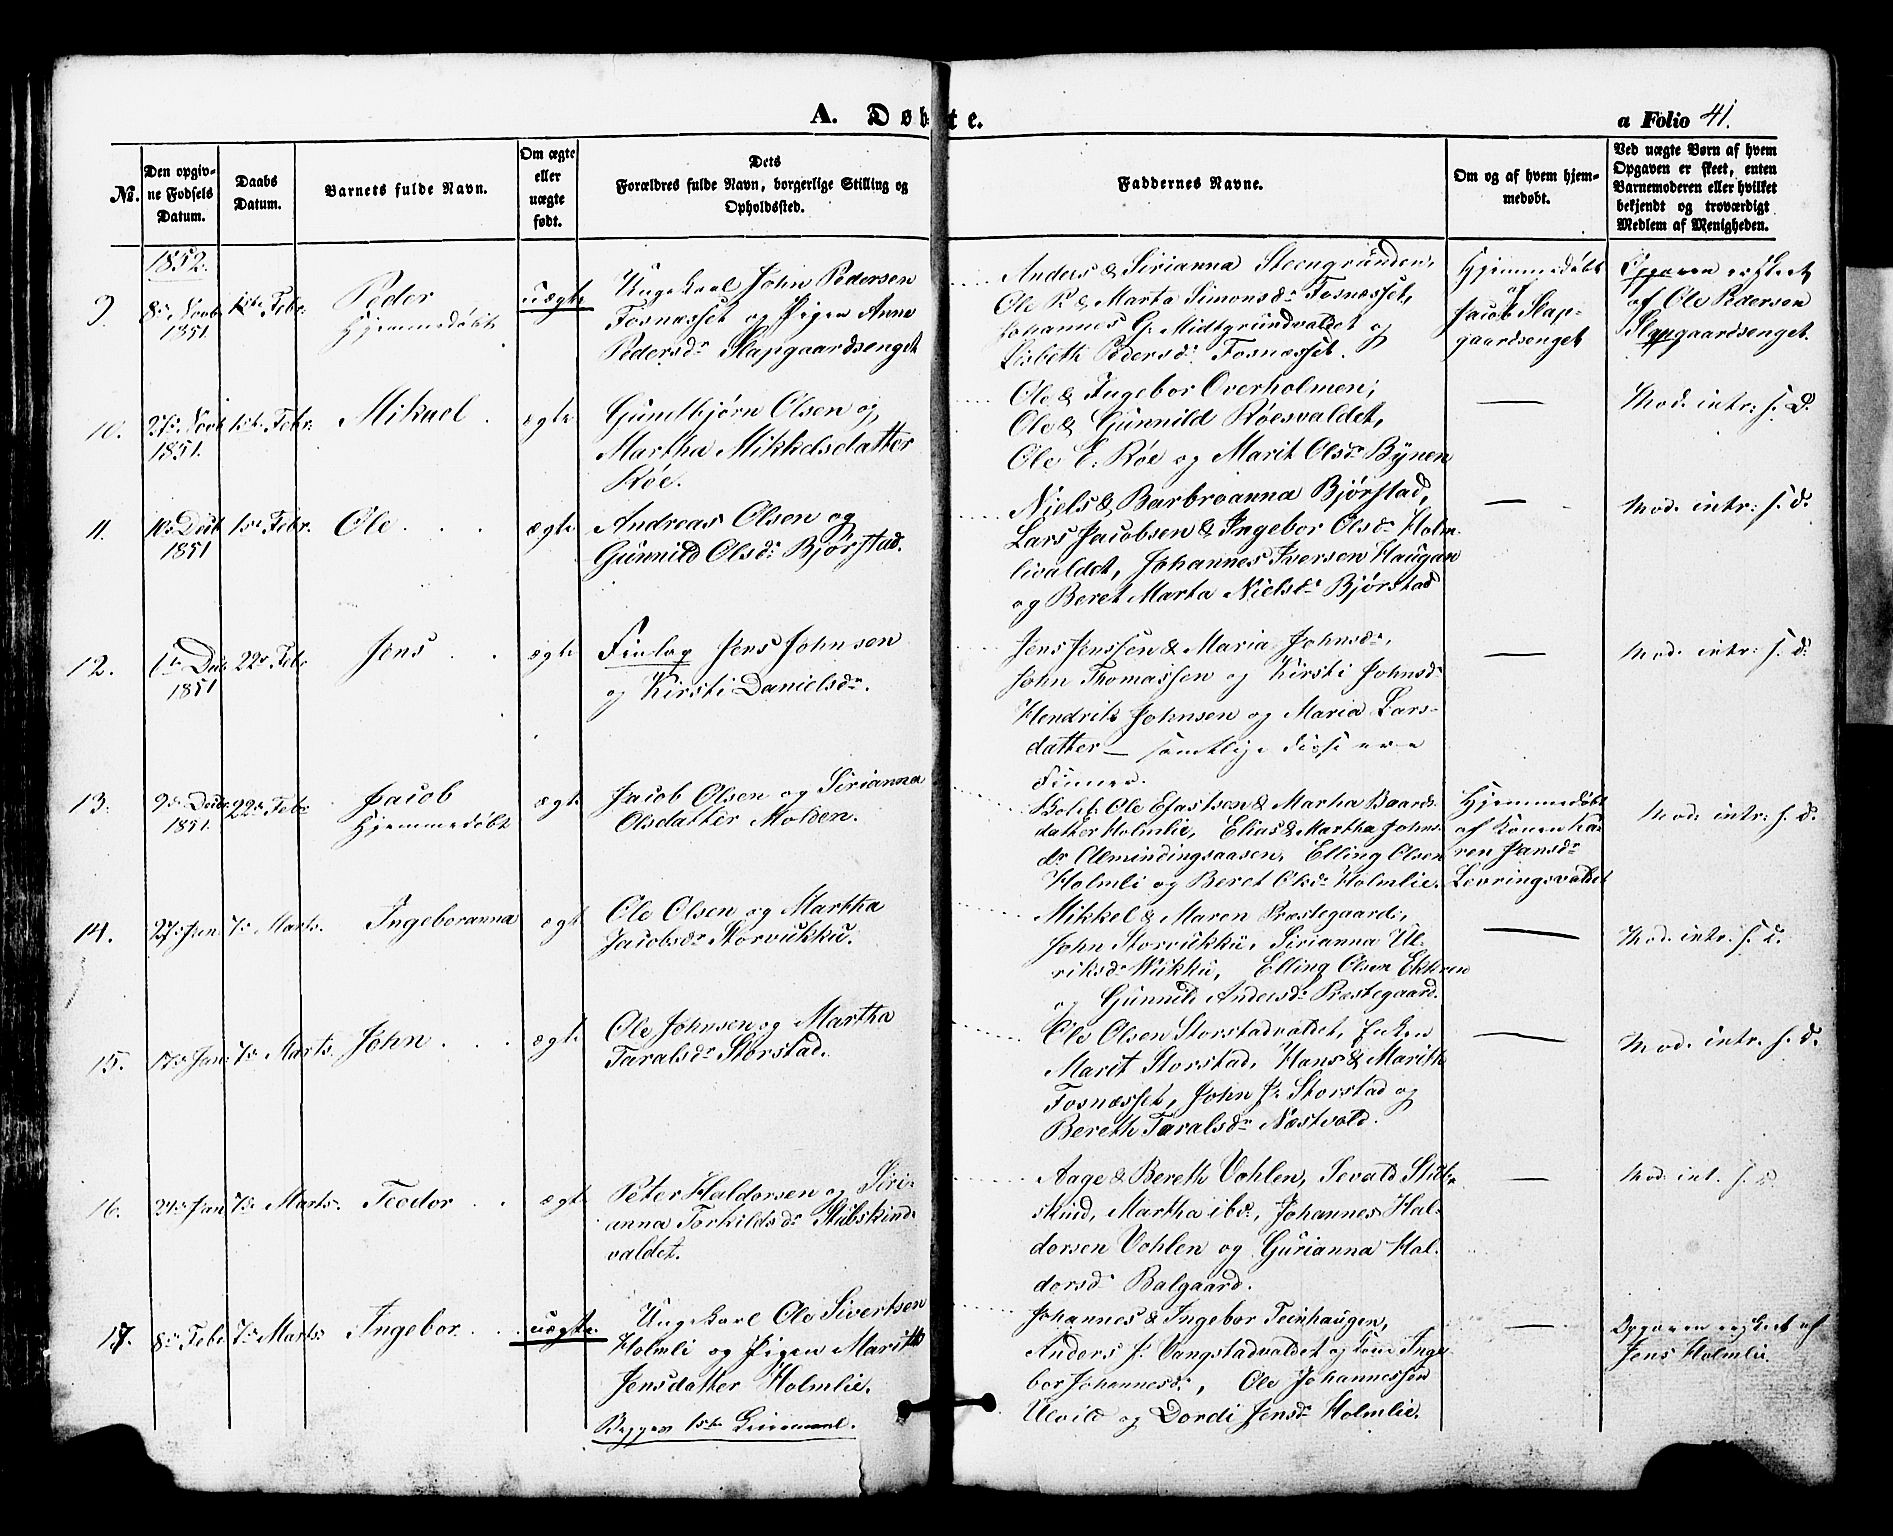 A. Døbte.
a Folio 41.
No.
Den opgiv-
ne Fødsels
Datum.
Daabs
Datum.
Barnets fulde Navn.
Om ægte
eller
uægte
født.
Dets
Forældres fulde Navn, borgerlige Stilling og
Opholdssted.
Faddernes Navne.
Om og af hvem hjem-
medøbt.
Ved uægte Børn af hvem
Opgaven er skeet, enten
Barnemoderen eller hvilket
bekjendt og troværdigt
Medlem af Menigheden.
1852.
9.
8de Novb
1851
1ste Febr.
Peder
Hjemmedøbt
uægte
Ungekarl John Pedersen
Fosnæsset og Pigen Anne
Pedersdr Slapgaardsenget
Anders & Sirianna Steengrunden,
Ole P. & Marta Simonsdr Fosnæsset,
Johannes G. Midtgrundvaldet og
Lisbeth Pedersdr Fosnæsset.
Hjemmedøbt
af
Jacob Slap-
gaardsenget
Opgaven er skeet
af Ole Pedersen
Slapgaardsenget.
10.
27de Novb
1851.
1ste Febr.
Mikael
ægte
Gundbjørn Olsen og
Martha Mikkelsdatter
Røe.
Ole & Ingebor Overholmen,
Ole & Gunnild Røesvaldet,
Ole E. Røe og Marit Olsdr Bynen
—
Mod. intr: s. D.
11.
10de Decb
1851
1ste Febr.
Ole
ægte
Andreas Olsen og
Gunnild Olsdr Bjørstad.
Niels & Barbroanna Bjørstad,
Lars Jacobsen & Ingebor Olsdr Holm-
livaldet, Johannes Iversen Haugan
og Beret Marta Nielsdr Bjørstad
—
Mod. intr: s. d.
12.
6te Decb
1851
22de Febr
Jens
ægte
Finlap Jens Johnsen
og Kirsti Danielsdr.
Jens Jenssen & Maria Johnsdr,
John Thomassen og Kirsti Johnsdr
Hendrik Johnsen og Maria Lars-
datter — samtlige disse ere
Finner.
—
Mod. intr: s. d.
13.
9de Decbr
1851.
22de Febr
Jacob
Hjemmedøbt
ægte
Jacob Olsen og Sirianna
Olsdatter Molden.
Ole Estensen & Martha Baards-
datter Holmlie, Elias & Martha Johns-
dr Almindingsaasen, Elling Olsen
Holmli og Beret Olsdr Holmlie.
Hjemmedøbt
af Konen Ka-
ren Jansdr
Levringsvaldet
Mod. intr: s. d.
14.
27de Jan
7de Marts.
Ingeboranna
ægte
Ole Olsen og Martha
Jacobsdr Storvukku.
Mikkel & Maren Præstegaard,
John Storvukku, Sirianna Ul-
riksdr Vukku, Elling Olsen Ekren
og Gunnild Andersdr Præstegaard.
—
Mod. intr. s. d.
15.
17de Jan
7de Marts.
John
ægte
Ole Johnsen og Martha
Taralsdr Storstad.
Ole Olsen Storstadvaldet, Enken
Marit Storstad, Hans & Marith
Fosnæsset, John J. Storstad og
Bereth Taralsdr Næstvold.
—
Mod. intr. s. d.
16.
24de Jan
7de Marts.
Teodor
ægte
Peter Haldorsen og Siri-
anna Torkildsdr Stubskind-
valdet.
Aage & Bereth Vohlen, Sevald Stub-
skind, Martha ibd., Johannes Hal-
dorsen Vohlen og Gurianna Hal-
dorsdr Balgaard.
—
Mod. int. s. d.
17.
8de Febr
7de Marts
Ingebor
uægte.
Ungekarl Ole Sivertsen
Holmli og Pigen Marith
Jensdatter Holmlie.
Begges 1ste Leiermaal.
Johannes & Ingebor Teinhaugen,
Anders J. Vangstadvaldet og Kone Inge-
bor Johannesdr, Ole Johannessen
Ulvild og Dordi Jensdr Holmlie.
—
Opgaven er skeet af
Jens Holmlie.